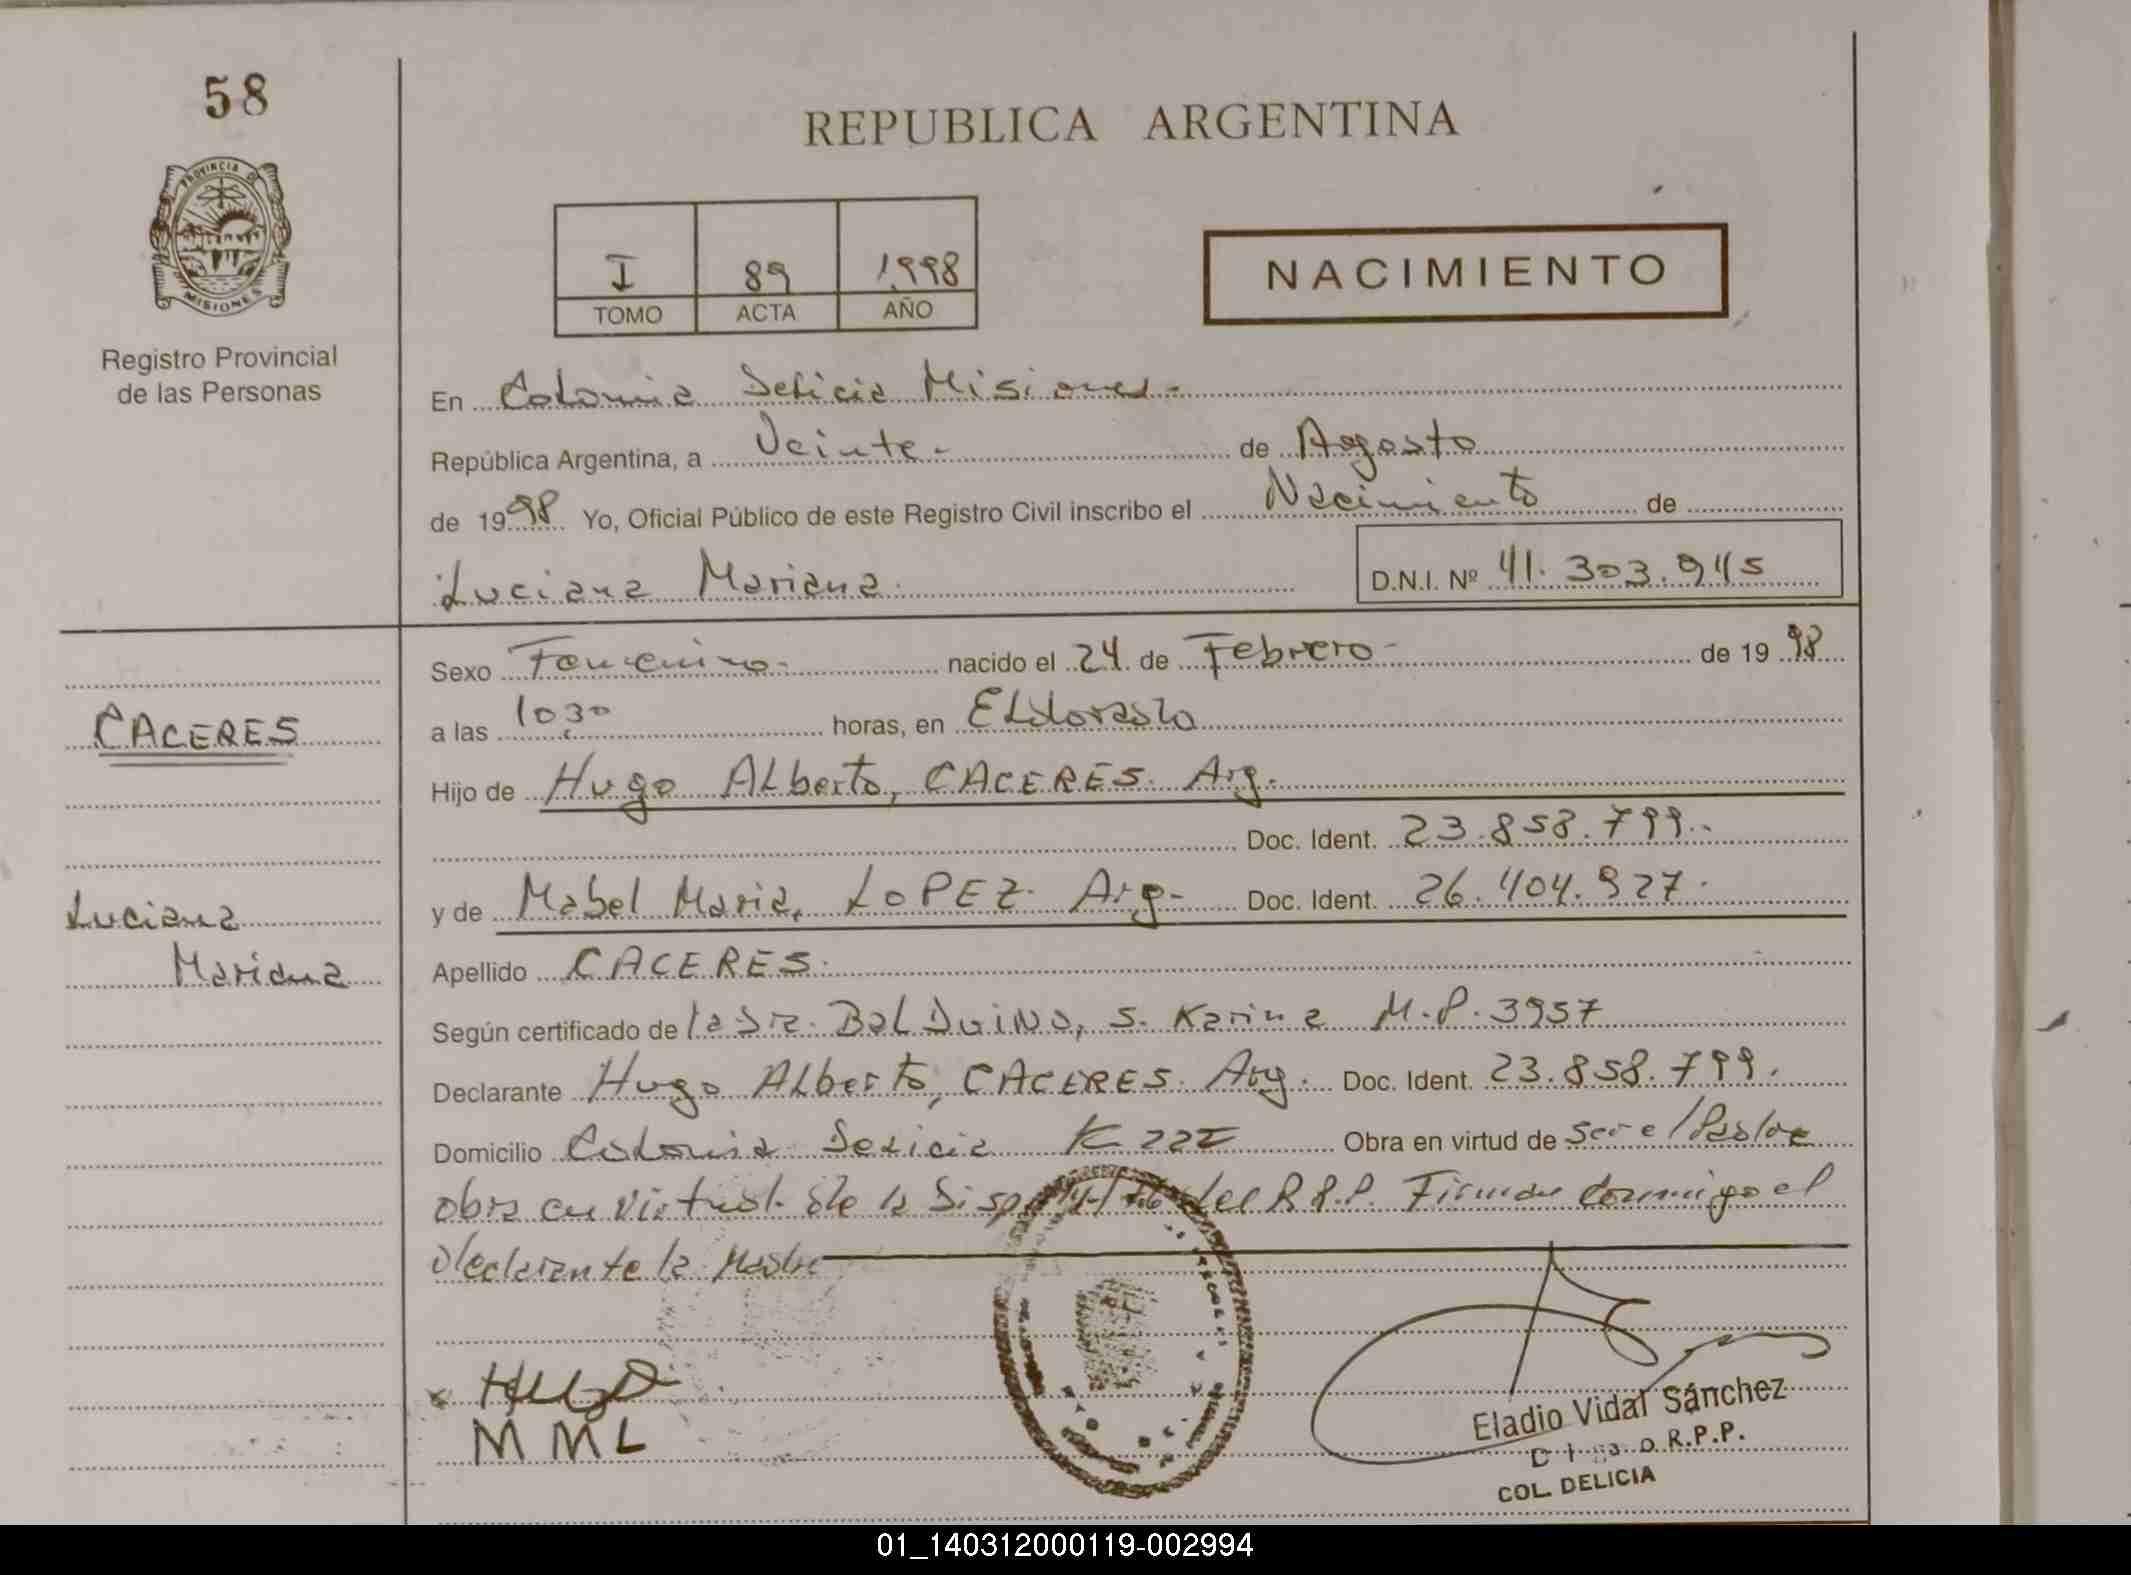 58
REPUBLICA ARGENTINA
PROVINCIA DE
MISIONES
Registro Provincial
de las Personas
I 89 1.998
TOMO ACTA AÑO
NACIMIENTO
En Colonia Delicia Misiones.-
República Argentina, a Veinte.- de Agosto
de 1998 Yo, Oficial Público de este Registro Civil inscribo el Nacimiento de
Luciana Mariana.
D.N.I. Nº 41.303.945
Sexo Femenino.- nacido el 24 de Febrero- de 1998
CACERES
a las 1030 horas, en Eldorado
Hijo de Hugo Alberto, CACERES. Arg.
Doc. Ident. 23.858.799.
y de Mabel Maria, LOPEZ. Arg- Doc. Ident. 26.404.927.
Luciana
Mariana
Apellido CACERES.
Según certificado de la Dra. BALDUINO, S. Karina M.P. 3957
Declarante Hugo Alberto, CACERES. Arg. Doc. Ident. 23.858.799.
Domicilio Colonia Delicia K Obra en virtud de ser el Padre
obra en virtud de la Disp del R.P.P. Firman conmigo el
declarante la Madre
HUGO
M M L
Eladio Vidal Sánchez
R.P.P.
COL. DELICIA
01_140312000119-002994